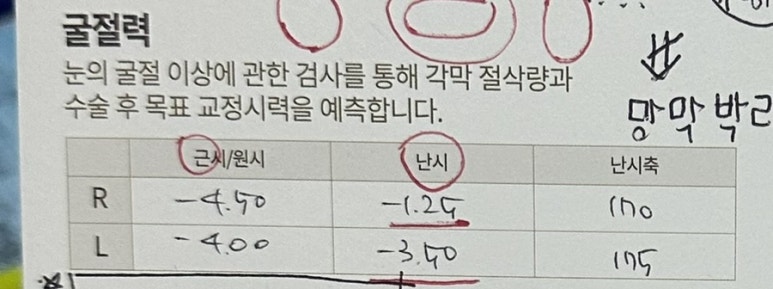 굴절력
눈의 굴절 이상에 관한 검사를 통해 각막 절삭량과
수술 후 목표 교정시력을 예측합니다.
망막박리
근시/원시 난시 난시축
R -4.50 -1.25 170
L -4.00 -3.50 175